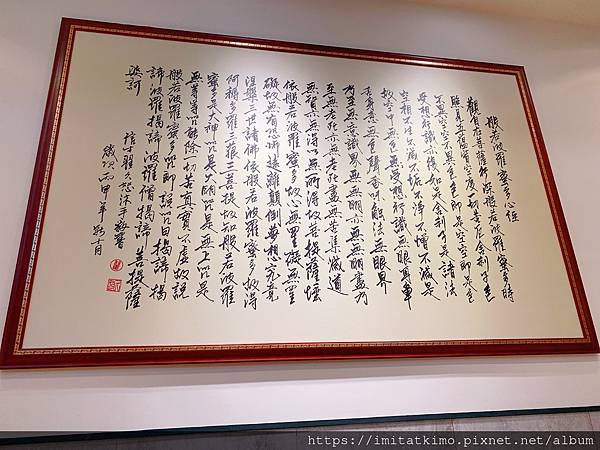 般若波羅蜜多心經
觀自在菩薩行深般若波羅蜜多時
照見五蘊皆空度一切苦厄舍利子色
不異空空不異色色即是空空即是色
受想行識亦復如是舍利子是諸法
空相不生不滅不垢不淨不增不減是
故空中無色無受想行識無眼耳鼻
舌身意無色聲香味觸法無眼界
乃至無意識界無無明亦無無明盡乃
至無老死亦無老死盡無苦集滅道
無智亦無得以無所得故菩提薩埵
依般若波羅蜜多故心無罣礙無罣
礙故無有恐怖遠離顛倒夢想究竟
涅槃三世諸佛依般若波羅蜜多故得
阿耨多羅三藐三菩提故知般若波羅
蜜多是大神咒是大明咒是無上咒是
無等等咒能除一切苦真實不虛故說
般若波羅蜜多咒即說咒曰揭諦揭
諦波羅揭諦波羅僧揭諦菩提薩
婆訶
歲次丙申年 十月
https://imitatkimo.pixnet.net/album